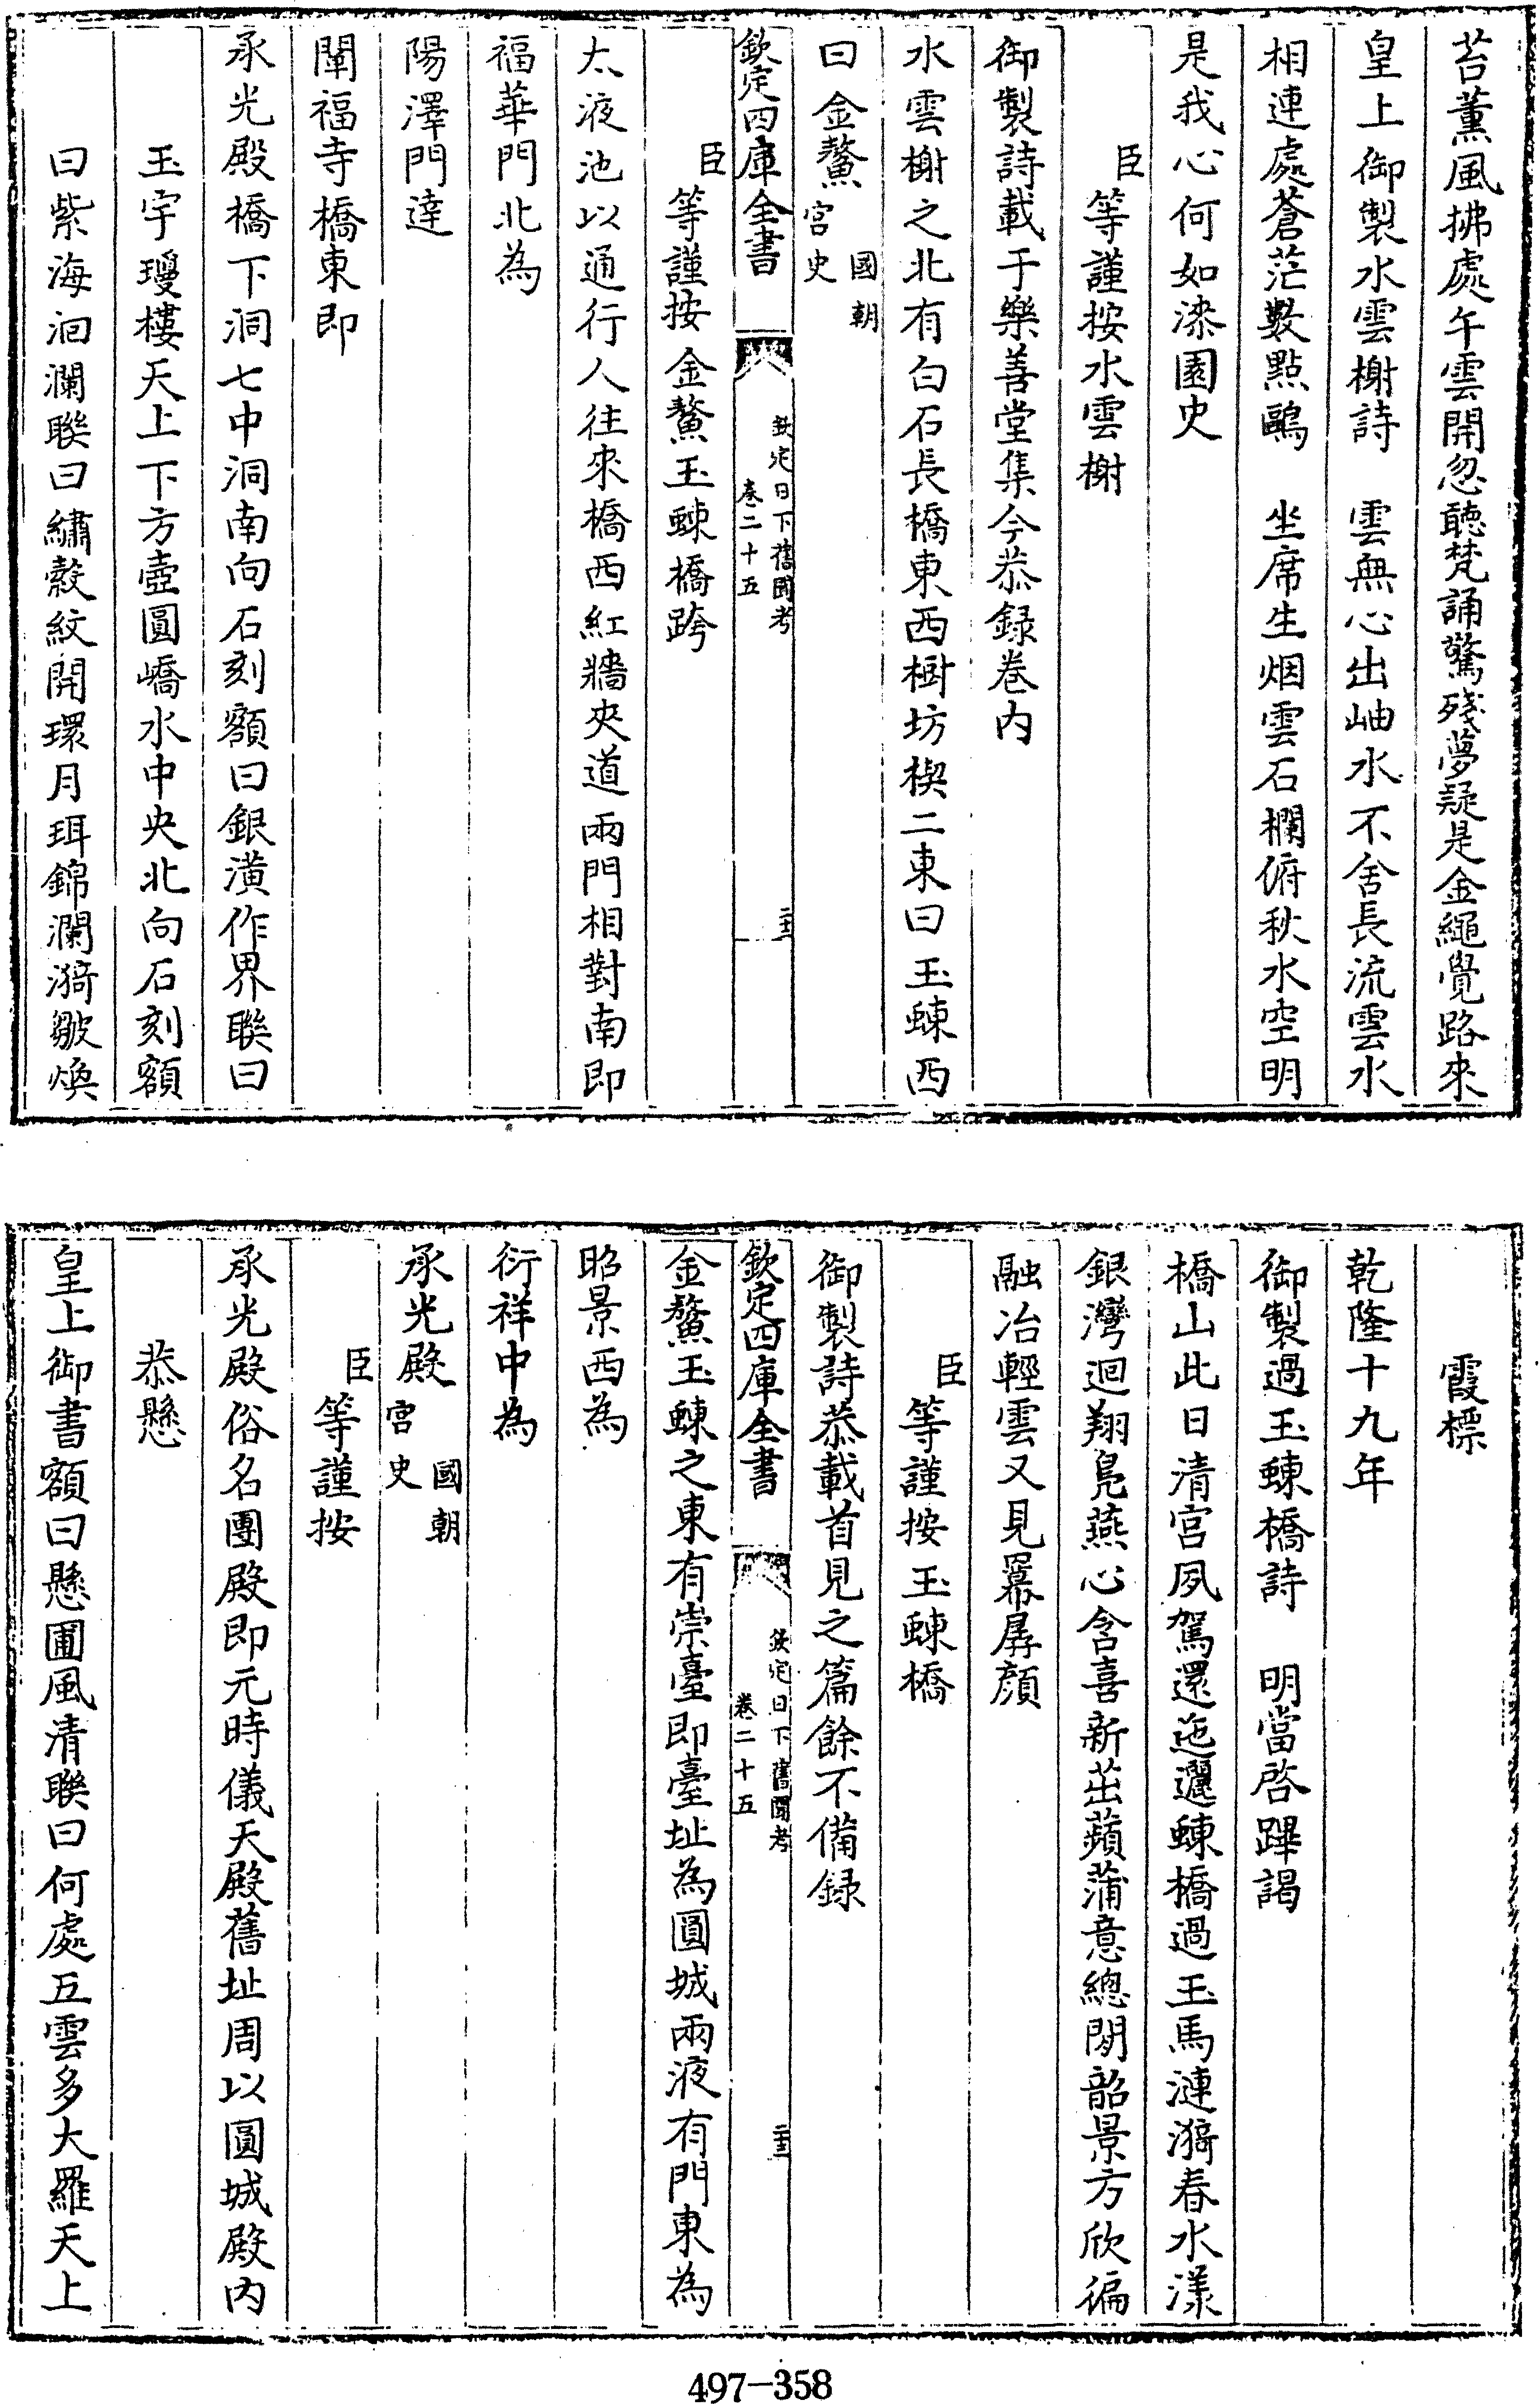 苔薰風拂處午雲開忽聽梵誦驚殘夢疑是金繩覺路來
皇上御製水雲榭詩　雲無心出岫水不舍長流雲水
相連處蒼茫數點鷗　坐席生烟雲石欄俯秋水空明
是我心何如漆園史
臣等謹按水雲榭
御製詩載于樂善堂集今恭録卷内
水雲榭之北有白石長橋東西樹坊楔二東曰玉蝀西
曰金鰲國朝宫史
欽定四庫全書
欽定日下舊聞考
卷二十五
二十三
臣等謹按金鰲玉蝀橋跨
太液池以通行人往來橋西紅牆夾道兩門相對南即
福華門北為
陽澤門達
闡福寺橋東即
承光殿橋下洞七中洞南向石刻額曰銀潢作界聯曰
玉宇瓊樓天上下方壺圓嶠水中央北向石刻額
曰紫海洄瀾聯曰繡縠紋開環月珥錦瀾漪皺煥
霞標
乾隆十九年
御製過玉蝀橋詩　明當啓蹕謁
橋山此日清宫夙駕還迤邐蝀橋過玉馬漣漪春水漾
銀灣迴翔鳧燕心含喜新茁蘋蒲意總閒韶景方欣徧
融冶輕雲又見羃孱顏
臣等謹按玉蝀橋
御製詩恭載首見之篇餘不備録
欽定四庫全書
欽定日下舊聞考
卷二十五
二十三
金鰲玉蝀之東有崇臺即臺址為圓城兩液有門東為
昭景西為
衍祥中為
承光殿國朝宫史
臣等謹按
承光殿俗名團殿即元時儀天殿舊址周以圓城殿内
恭懸
皇上御書額曰懸圃風清聯曰何處五雲多大羅天上
497-358